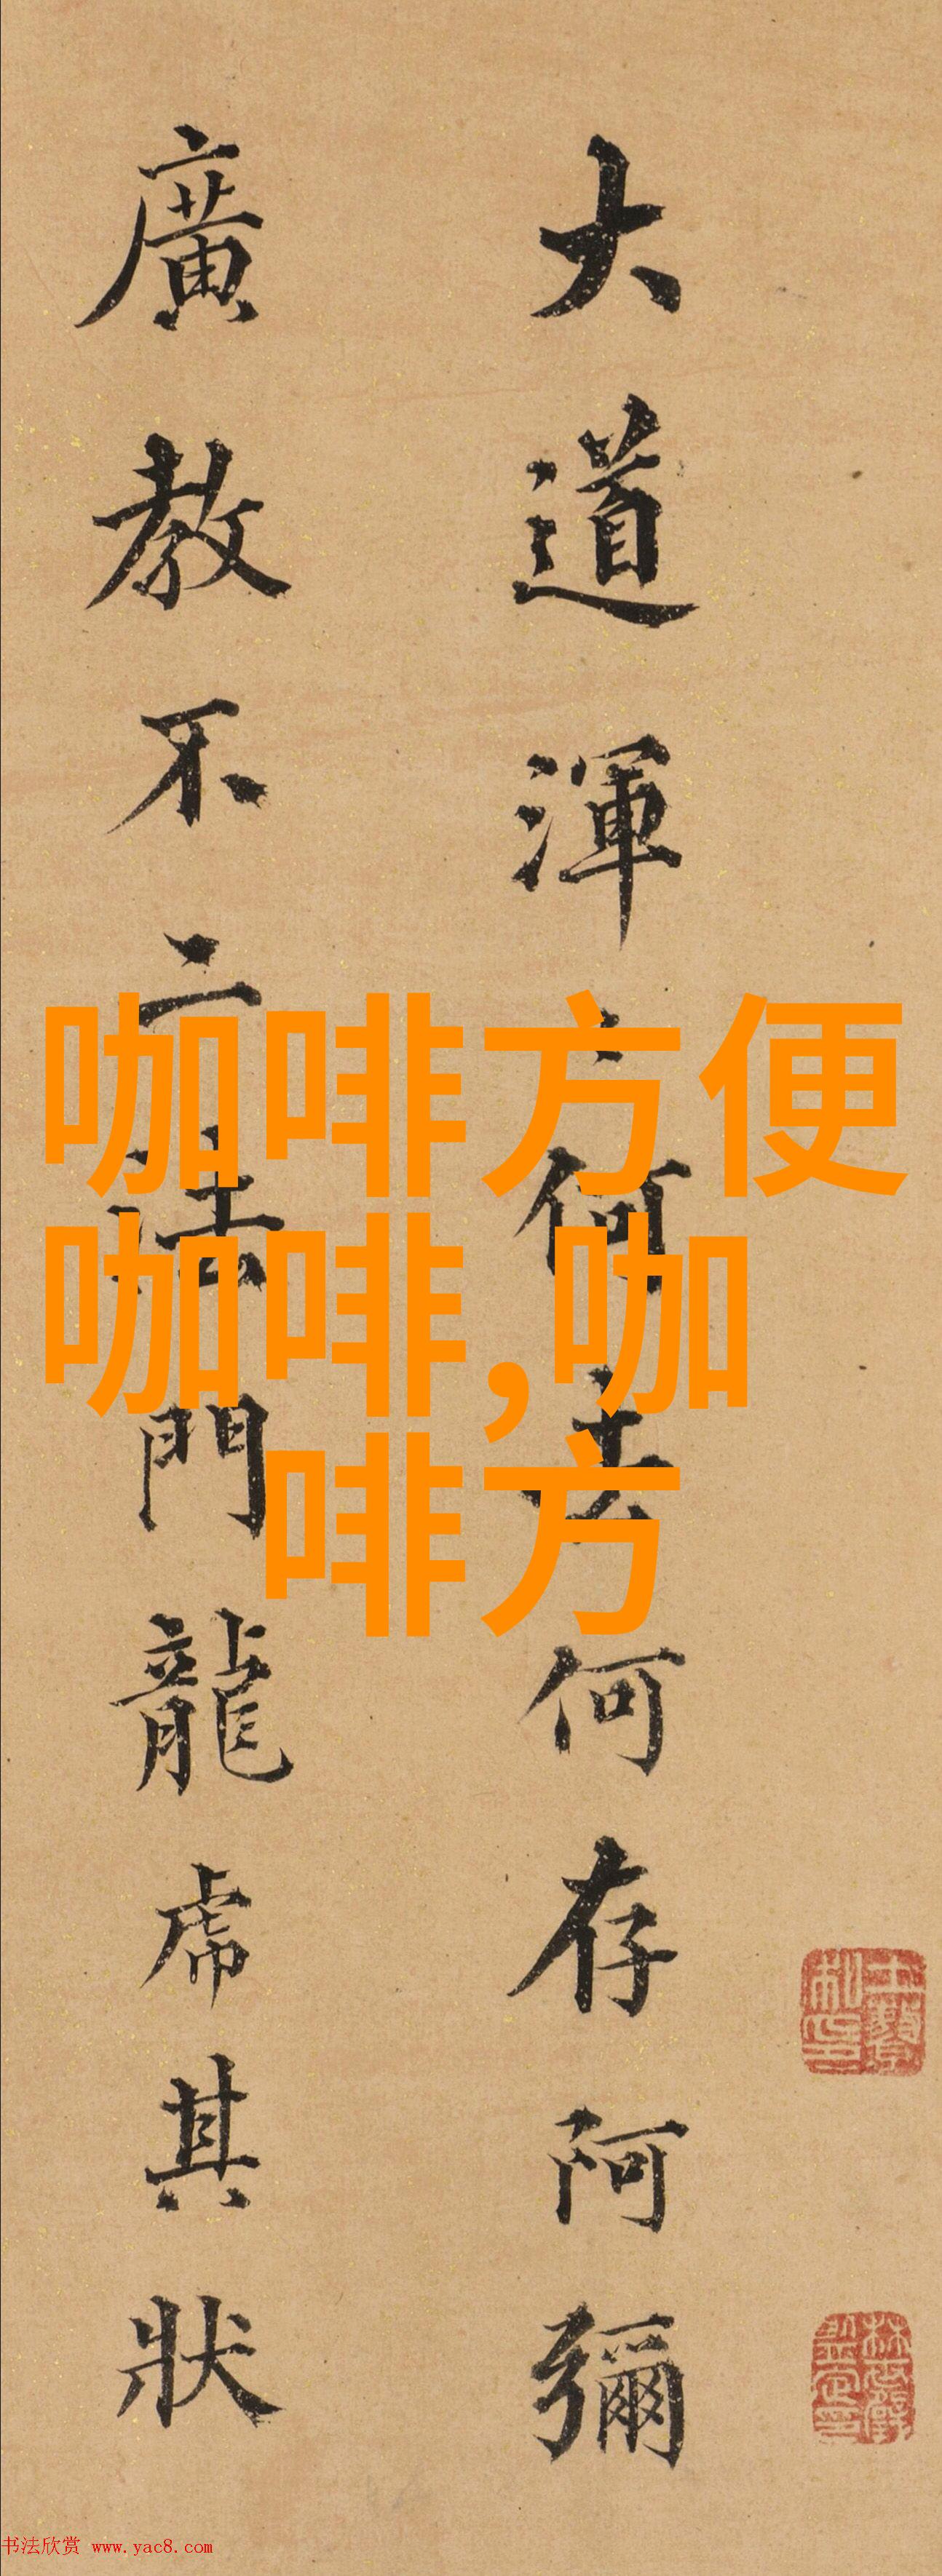 大道渾
何去何存阿彌
廣教不二法門龍虎其狀
咖啡方便
咖啡,咖
啡方
书法欣赏 www.yac8.com